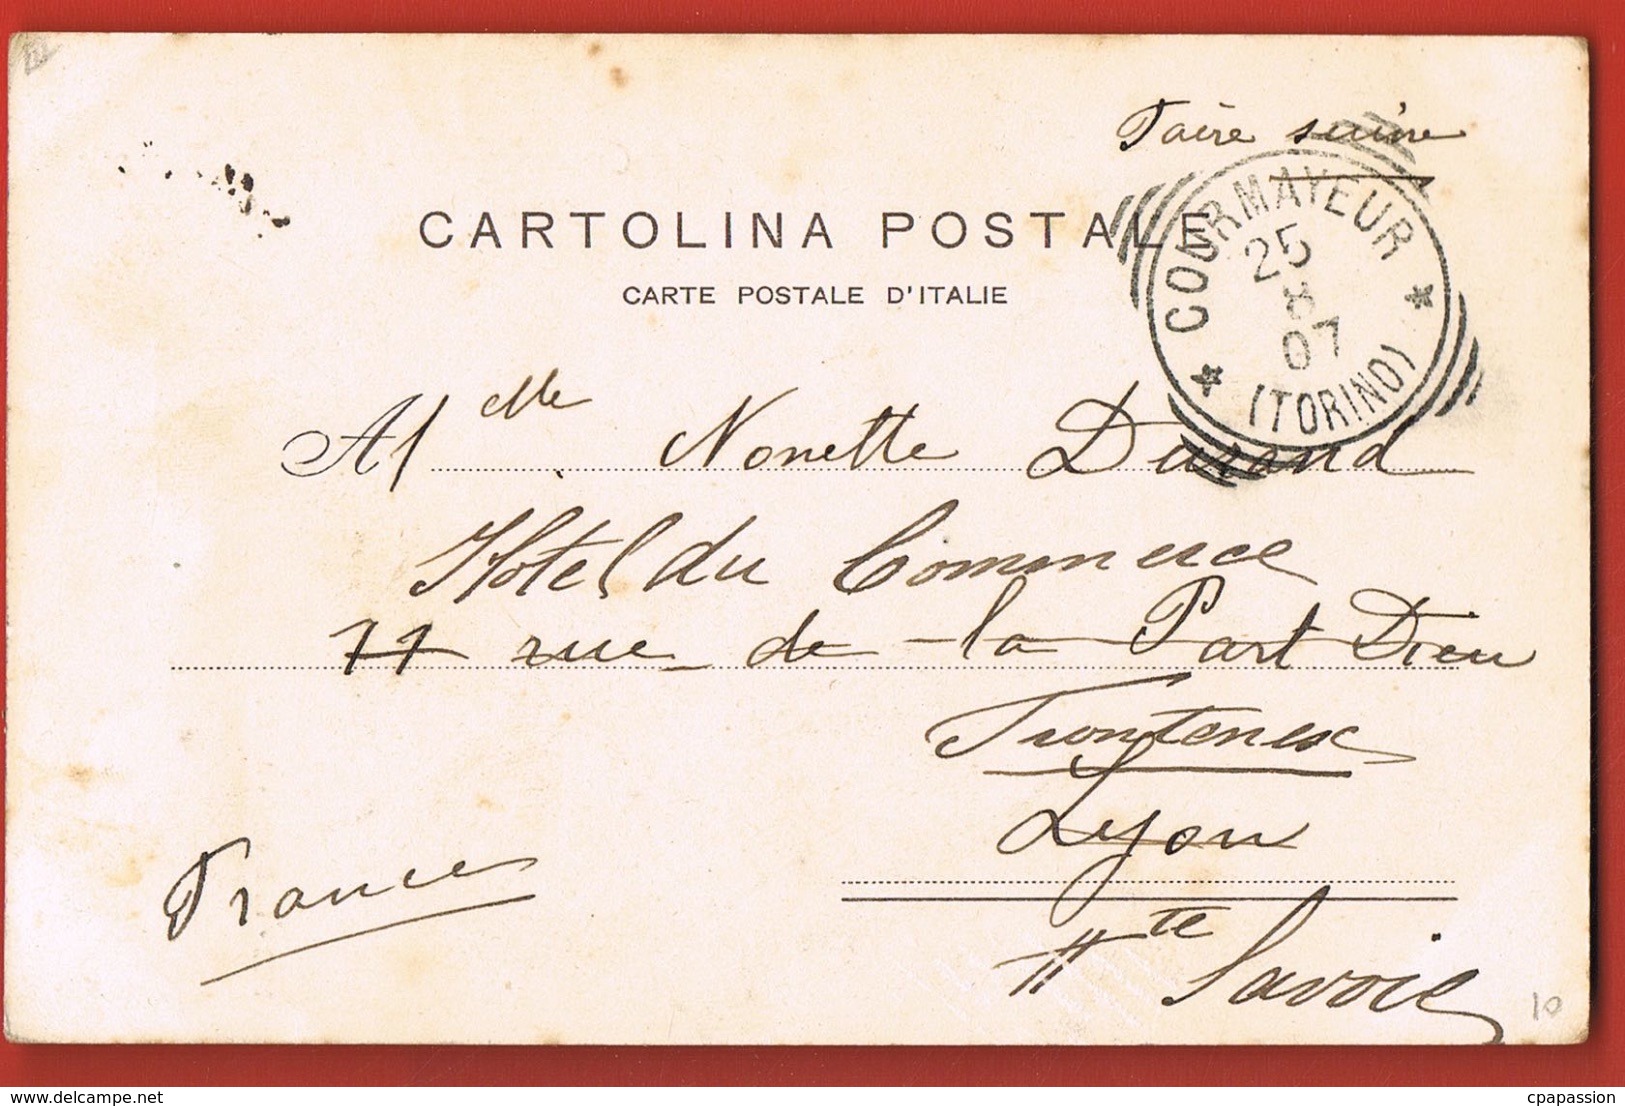 Faire suivre
CARTOLINA POSTALE
CARTE POSTALE D'ITALIE
COURMAYEUR
25
8
07
(TORINO)
Mlle Nonette Durand
Hotel du Commerce
77 rue de la Part Dieu
Frontenex
Lyon
Hte Savoie
France
10
delcampe.net
cpapassion